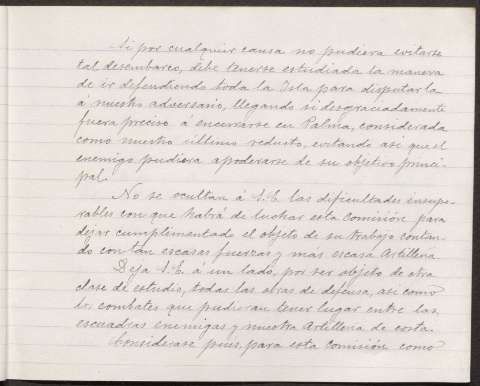 Si por cualquier causa no pudiera evitarse
tal desembarco, debe tenerse estudiada la manera
de ir defendiendo toda la Isla para disputarla
á nuestro adversario, llegando si desgraciadamente
fuera preciso á encerrarse en Palma, considerada
como nuestro último reducto, evitando así que el
enemigo pudiera apoderarse de su objetivo princi-
pal.
No se ocultan á S.E. las dificultades insupe-
rables con que habrá de luchar esta Comisión para
dejar cumplimentado el objeto de su trabajo contan-
do con tan escasas fuerzas y más escasa Artillería.
Deja S.E. á un lado, por ser objeto de otra
clase de estudio, todas las obras de defensa, así como
los combates que pudieran tener lugar entre las
escuadras enemigas y nuestra Artillería de costa.
Considerase pues, para esta comisión como